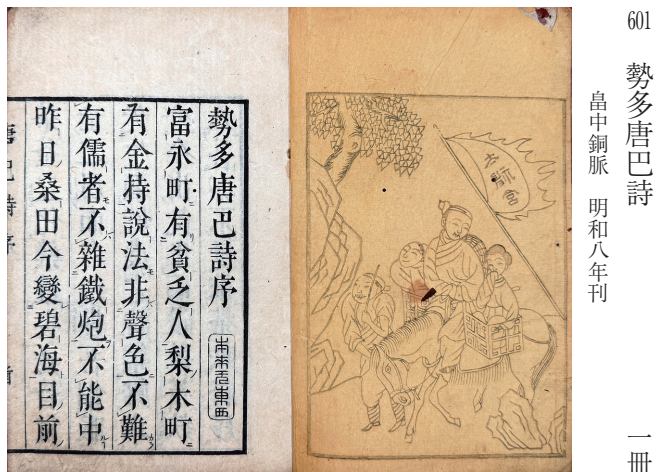 601
勢多唐巴詩
畠中銅脈 明和八年刊
一冊
太神宮
勢多唐巴詩序
本来无東西
富永町有貧乏人梨木町
有金持說法非聲色不難
有儒者不雜鐵炮不能中
昨日桑田今變碧海目前